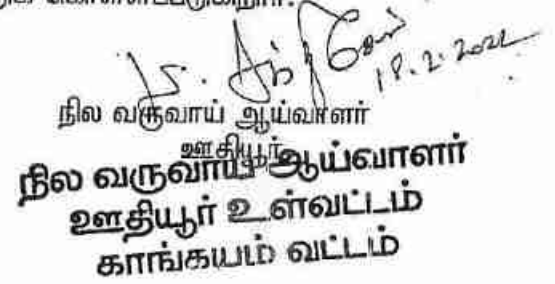 கொள்ளப்படுகிறார்.
18.2.2022
நில வருவாய் ஆய்வாளர்
ஊதியூர்
நில வருவாய் ஆய்வாளர்
ஊதியூர் உள்வட்டம்
காங்கயம் வட்டம்